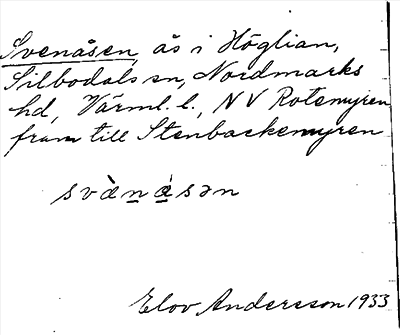 Svenåsen, ås i Höglian,
Silbodals sn, Nordmarks
hd, Värml. l., NV Rotemyren
fram till Stenbackemyren
svä̀nå̀sən
Elov Andersson 1933